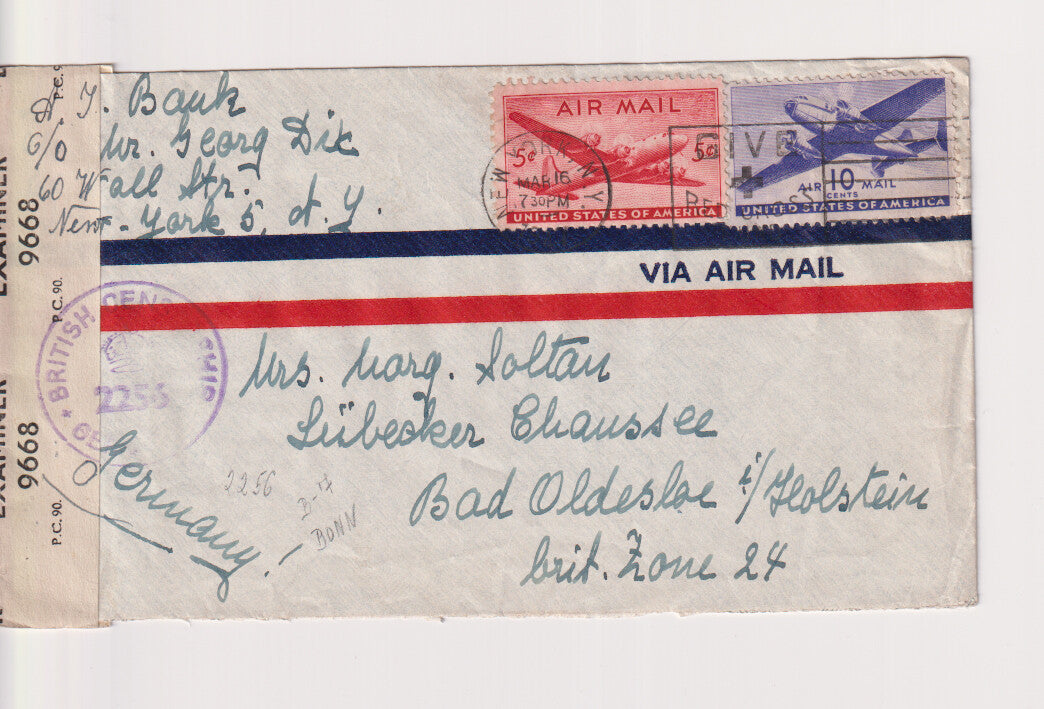 A. J. Bank
c/o Mr. Georg Dix
60 Wall Str.
New-York 5, N.Y.
AIR MAIL
5¢ 5¢
UNITED STATES OF AMERICA
AIR 10 MAIL
CENTS
UNITED STATES OF AMERICA
NEW YORK, N.Y.
MAR 16
7 30 PM
GIVE
VIA AIR MAIL
EXAMINER 9668
P.C. 90.
EXAMINER 9668
P.C. 90.
P.C. 9
BRITISH CENSORSHIP
2256
Mrs. Marg. Soltan
Lübecker Chaussee
Bad Oldesloe i/Holstein
brit. Zone 24
Germany.
2256
B-17
BONN